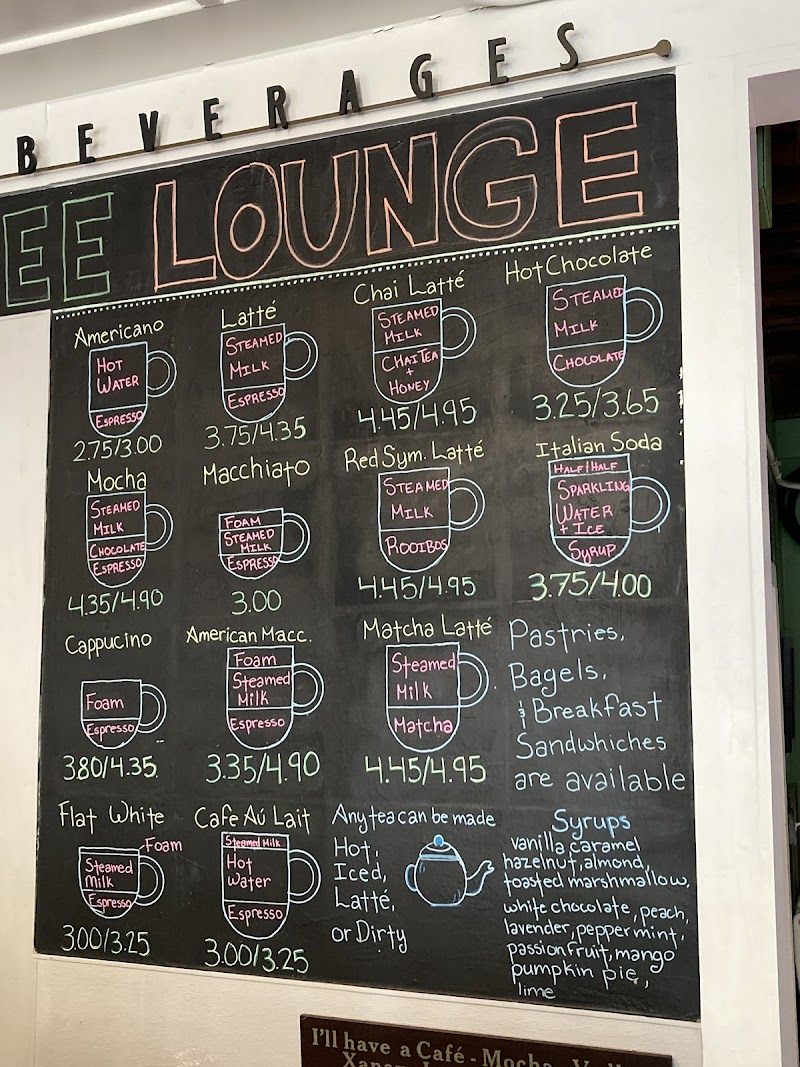 BEVERAGES
EE LOUNGE
Americano
HOT
WATER
ESPRESSO
2.75/3.00
Latté
STEAMED
MILK
ESPRESSO
3.75/4.35
Chai Latté
STEAMED
MILK
CHAI TEA
+
HONEY
4.45/4.95
Hot Chocolate
STEAMED
MILK
CHOCOLATE
3.25/3.65
Mocha
STEAMED
MILK
CHOCOLATE
ESPRESSO
4.35/4.90
Macchiato
FOAM
STEAMED
MILK
ESPRESSO
3.00
Red Sym. Latté
STEAMED
MILK
ROOIBOS
4.45/4.95
Italian Soda
HALF/HALF
SPARKLING
WATER
+ ICE
SYRUP
3.75/4.00
Cappucino
Foam
Espresso
3.80/4.35
American Macc.
Foam
Steamed
Milk
Espresso
3.35/4.90
Matcha Latté
Steamed
Milk
Matcha
4.45/4.95
Pastries,
Bagels,
& Breakfast
Sandwhiches
are available
Flat White
Foam
Steamed
Milk
Espresso
3.00/3.25
Cafe Aú Lait
Steamed Milk
Hot
Water
Espresso
3.00/3.25
Any tea can be made
Hot,
Iced,
Latté,
or Dirty
Syrups
vanilla, caramel
hazelnut, almond,
toasted marshmallow,
white chocolate, peach,
lavender, peppermint,
passionfruit, mango
pumpkin pie,
lime
I'll have a Café - Mocha